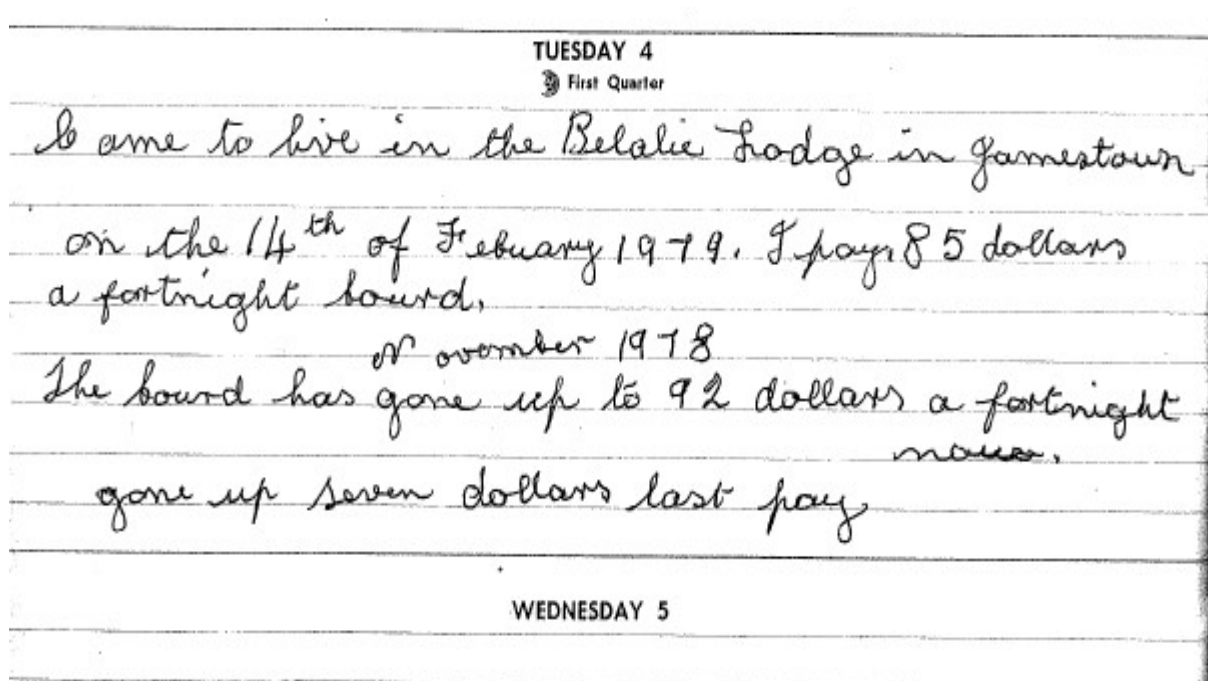 TUESDAY 4
First Quarter
Came to live in the Belalie Lodge in Jamestown
on the 14th of Febuary 1979. I pay 85 dollars
a fortnight bourd.
Novomber 1978
The bourd has gone up to 92 dollars a fortnight
now.
gone up seven dollars last pay
WEDNESDAY 5